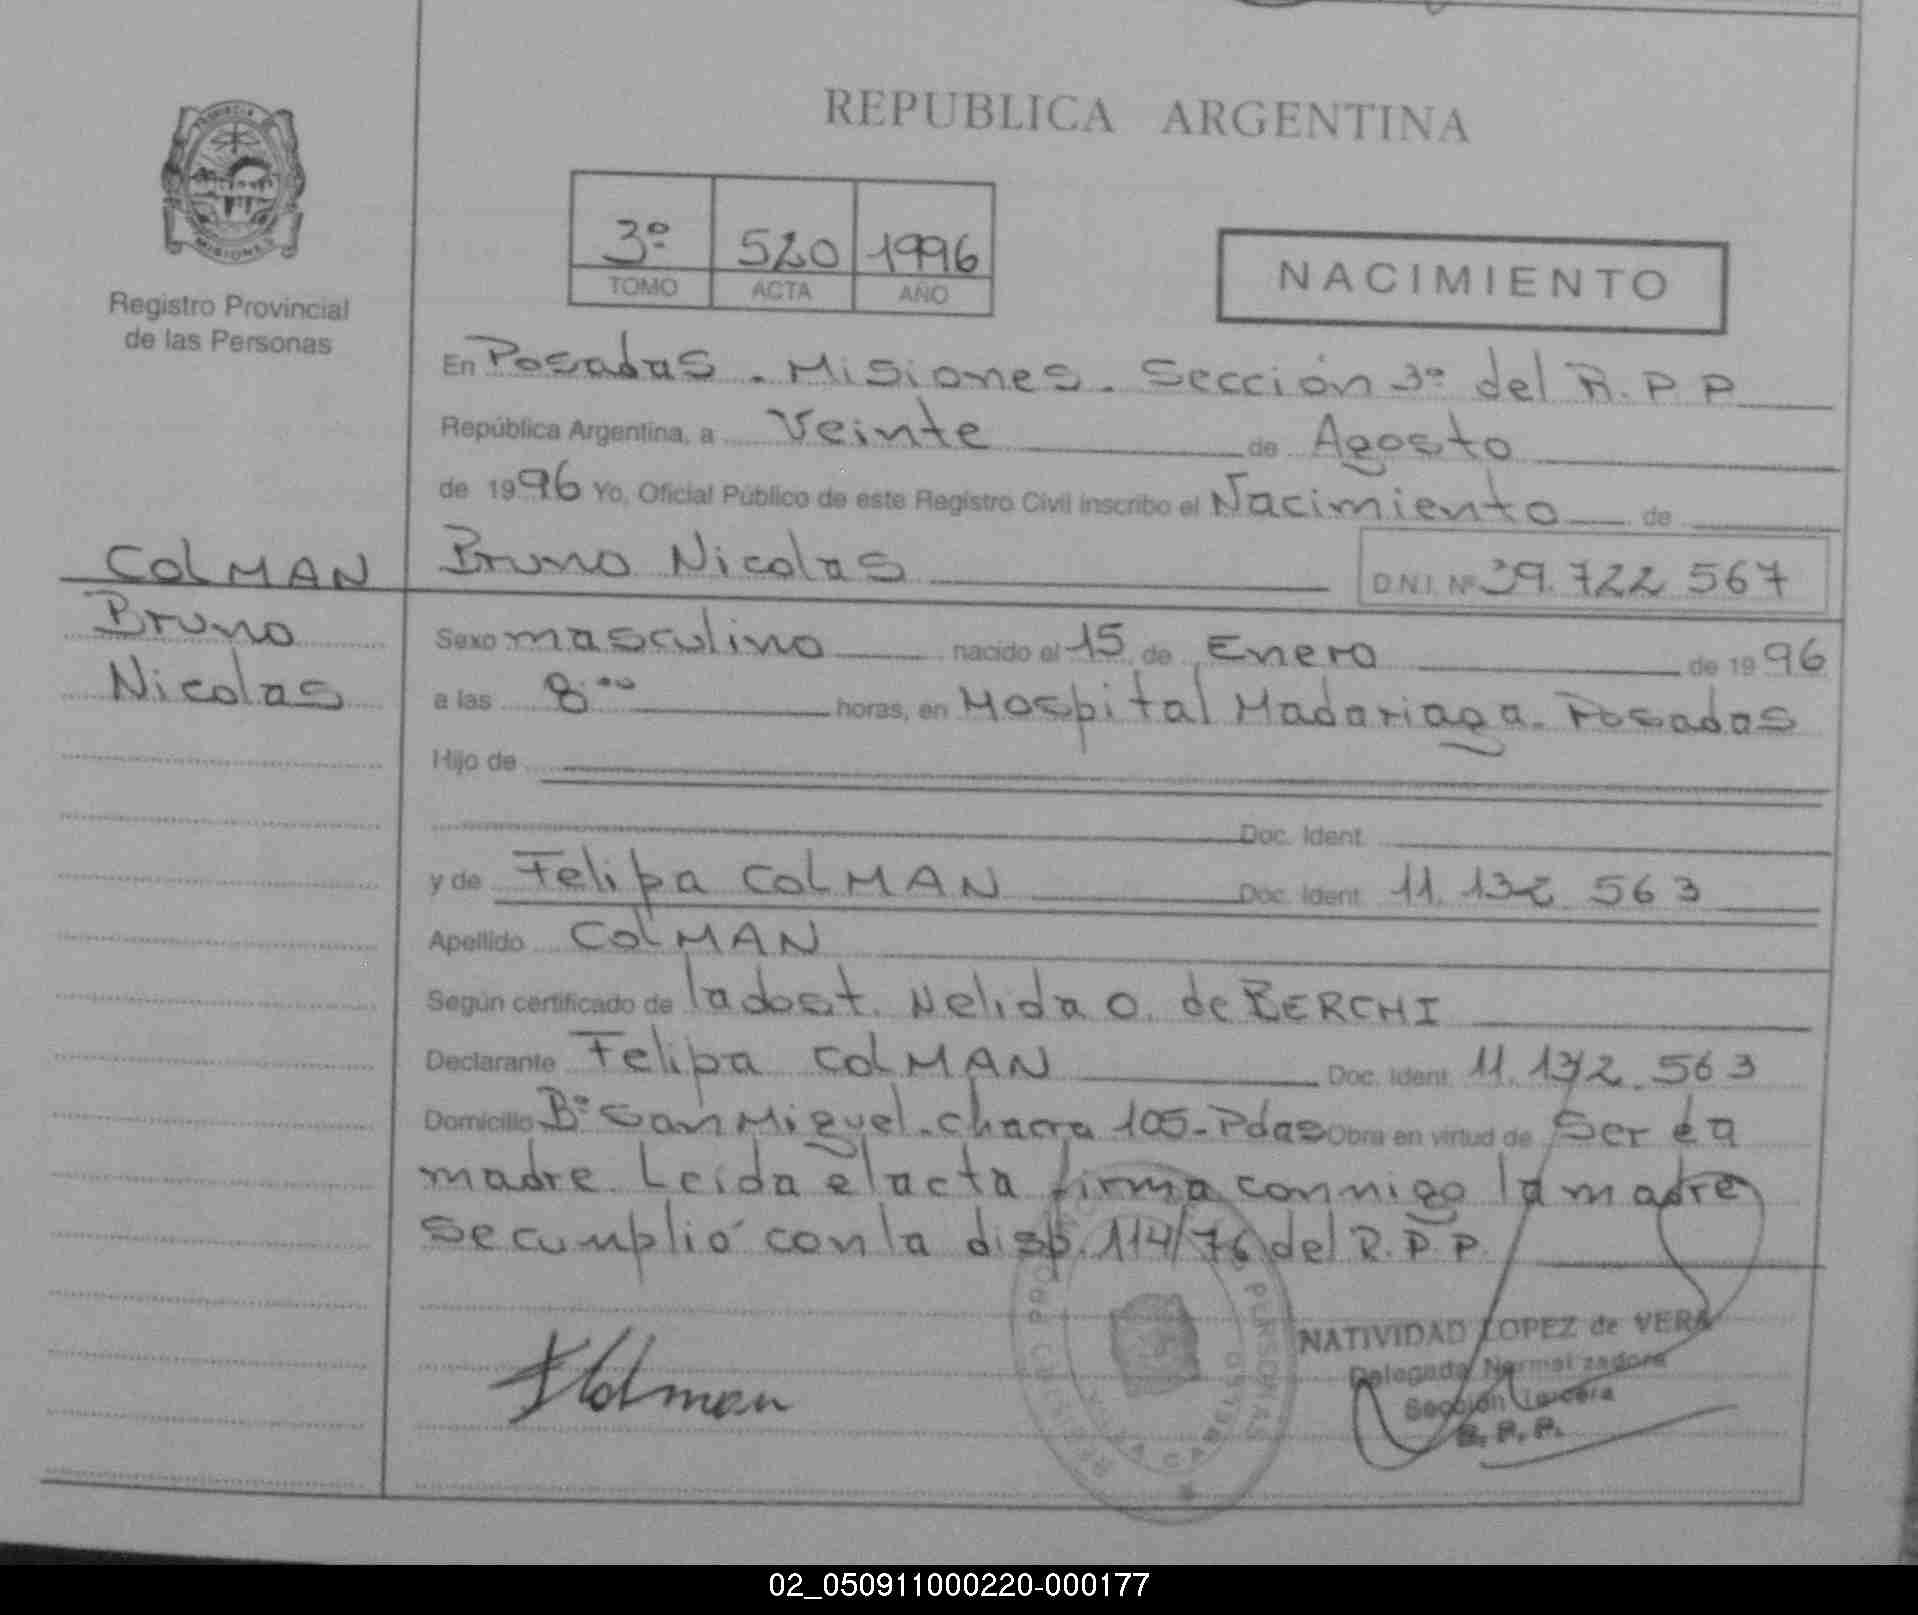 REPUBLICA ARGENTINA
PROVINCIA
MISIONES
Registro Provincial
de las Personas
3º 520 1996
TOMO ACTA AÑO
NACIMIENTO
En Posadas. Misiones. Sección 3º del R.P.P
República Argentina, a Veinte de Agosto
de 1996 Yo, Oficial Público de este Registro Civil inscribo el Nacimiento de
ColMAN
Bruno
Nicolas
Bruno Nicolas D.N.I. Nº 39.722 567
Sexo masculino nacido el 15 de Enero de 1996
a las 8.00 horas, en Hospital Madariaga. Posadas
Hijo de
Doc. Ident.
y de Felipa ColMAN Doc. Ident. 11.132 563
Apellido ColMAN
Según certificado de la dost. Nelida O. de BERCHI
Declarante Felipa ColMAN Doc. Ident. 11.132.563
Domicilio Bº San Miguel. chacra 105-Pdas Obra en virtud de Ser la
madre. Leida el acta firma conmigo la madre
se cumplió con la disp. 114/76 del R.P.P.
FColman
NATIVIDAD LOPEZ de VERA
Delegada Normalizadora
Sección Tercera
R.P.P.
02_050911000220-000177